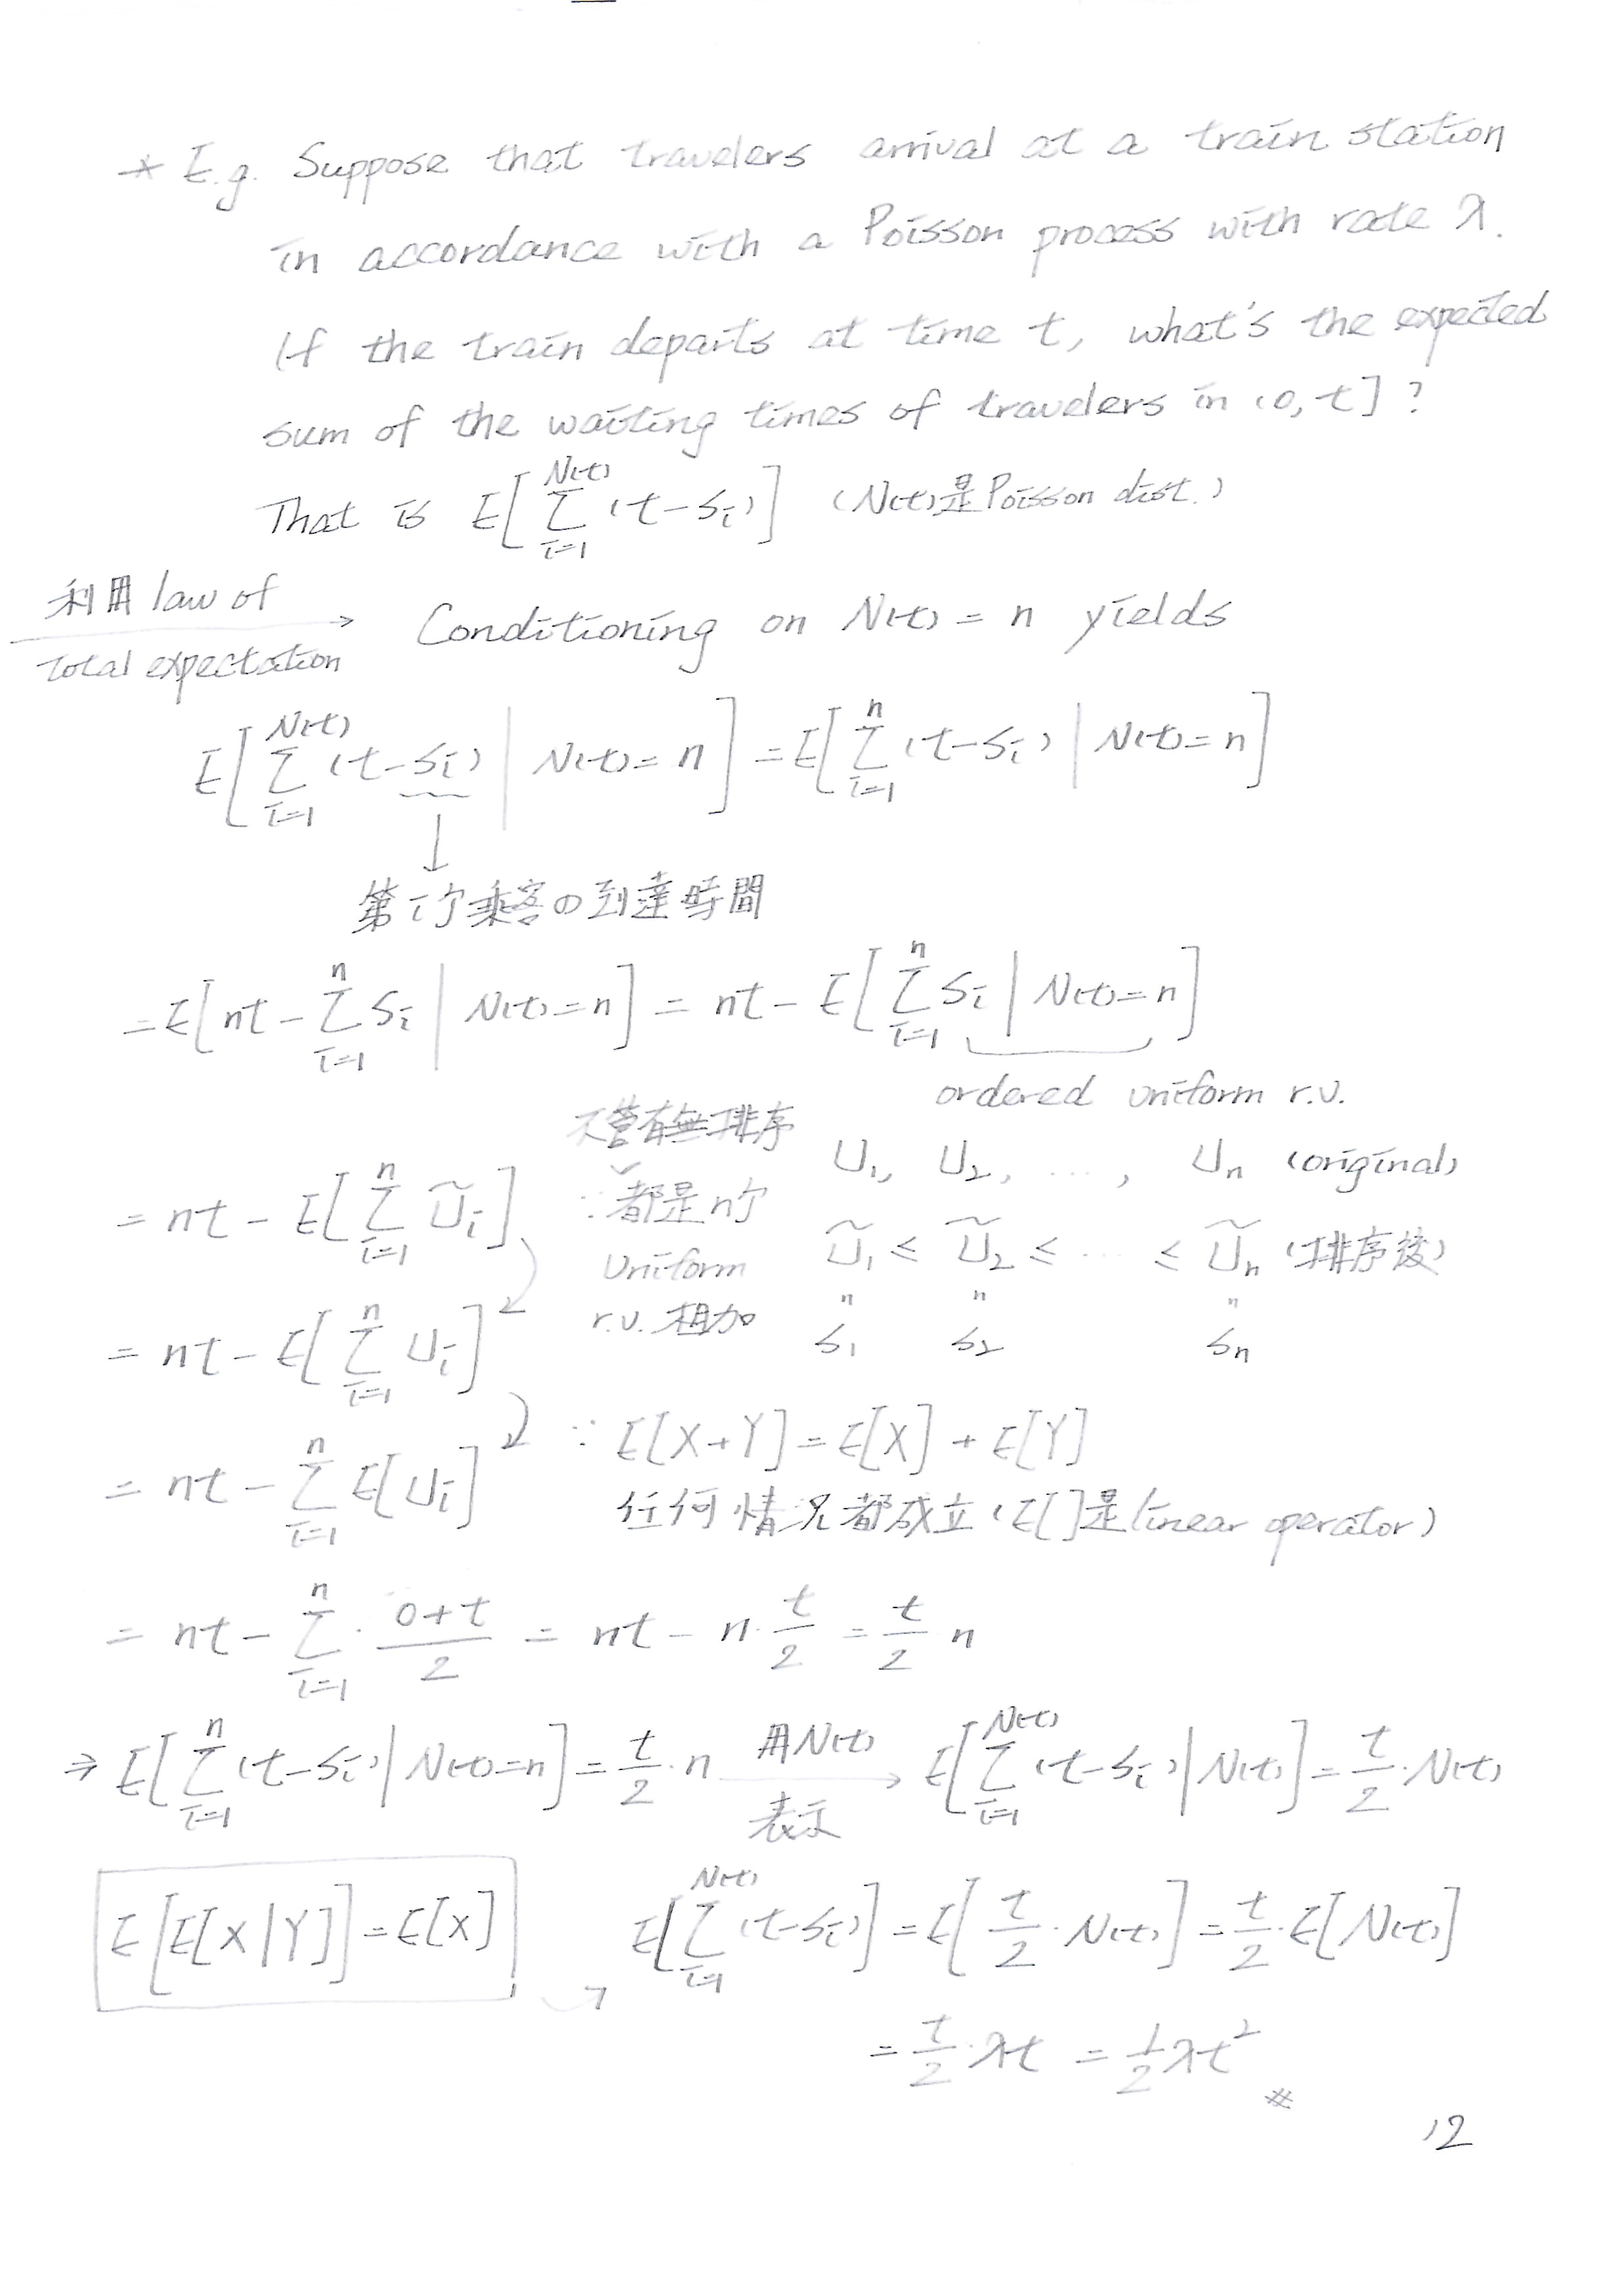 * E.g. Suppose that travelers arrival at a train station
in accordance with a Poisson process with rate λ.
If the train departs at time t, what's the expected
sum of the waiting times of travelers in (0, t] ?
That is E[∑_{i=1}^{N(t)} (t-S_i)] (N(t)是Poisson dist.)
利用 law of total expectation → Conditioning on N(t) = n yields
E[∑_{i=1}^{N(t)} (t-S_i) | N(t) = n] = E[∑_{i=1}^{n} (t-S_i) | N(t) = n]
↓
第i个乘客の到達時間
= E[nt - ∑_{i=1}^{n} S_i | N(t) = n] = nt - E[∑_{i=1}^{n} S_i | N(t) = n]
ordered uniform r.v.
不管有無排序
U_1, U_2, ..., U_n (original)
= nt - E[∑_{i=1}^{n} Ũ_i] ∵ 都是n个
Uniform
r.v. 相加
Ũ_1 ≤ Ũ_2 ≤ ... ≤ Ũ_n (排序後)
" " "
S_1 S_2 S_n
= nt - E[∑_{i=1}^{n} U_i]
∵ E[X+Y] = E[X] + E[Y]
= nt - ∑_{i=1}^{n} E[U_i] 任何情况都成立 (E[ ]是linear operator)
= nt - ∑_{i=1}^{n} · (0+t)/2 = nt - n · t/2 = t/2 n
⇒ E[∑_{i=1}^{n} (t-S_i) | N(t) = n] = t/2 · n 用N(t)表示 → E[∑_{i=1}^{N(t)} (t-S_i) | N(t)] = t/2 · N(t)
E[E[X|Y]] = E[X] → E[∑_{i=1}^{N(t)} (t-S_i)] = E[t/2 · N(t)] = t/2 · E[N(t)]
= t/2 · λt = 1/2 λt² #
12